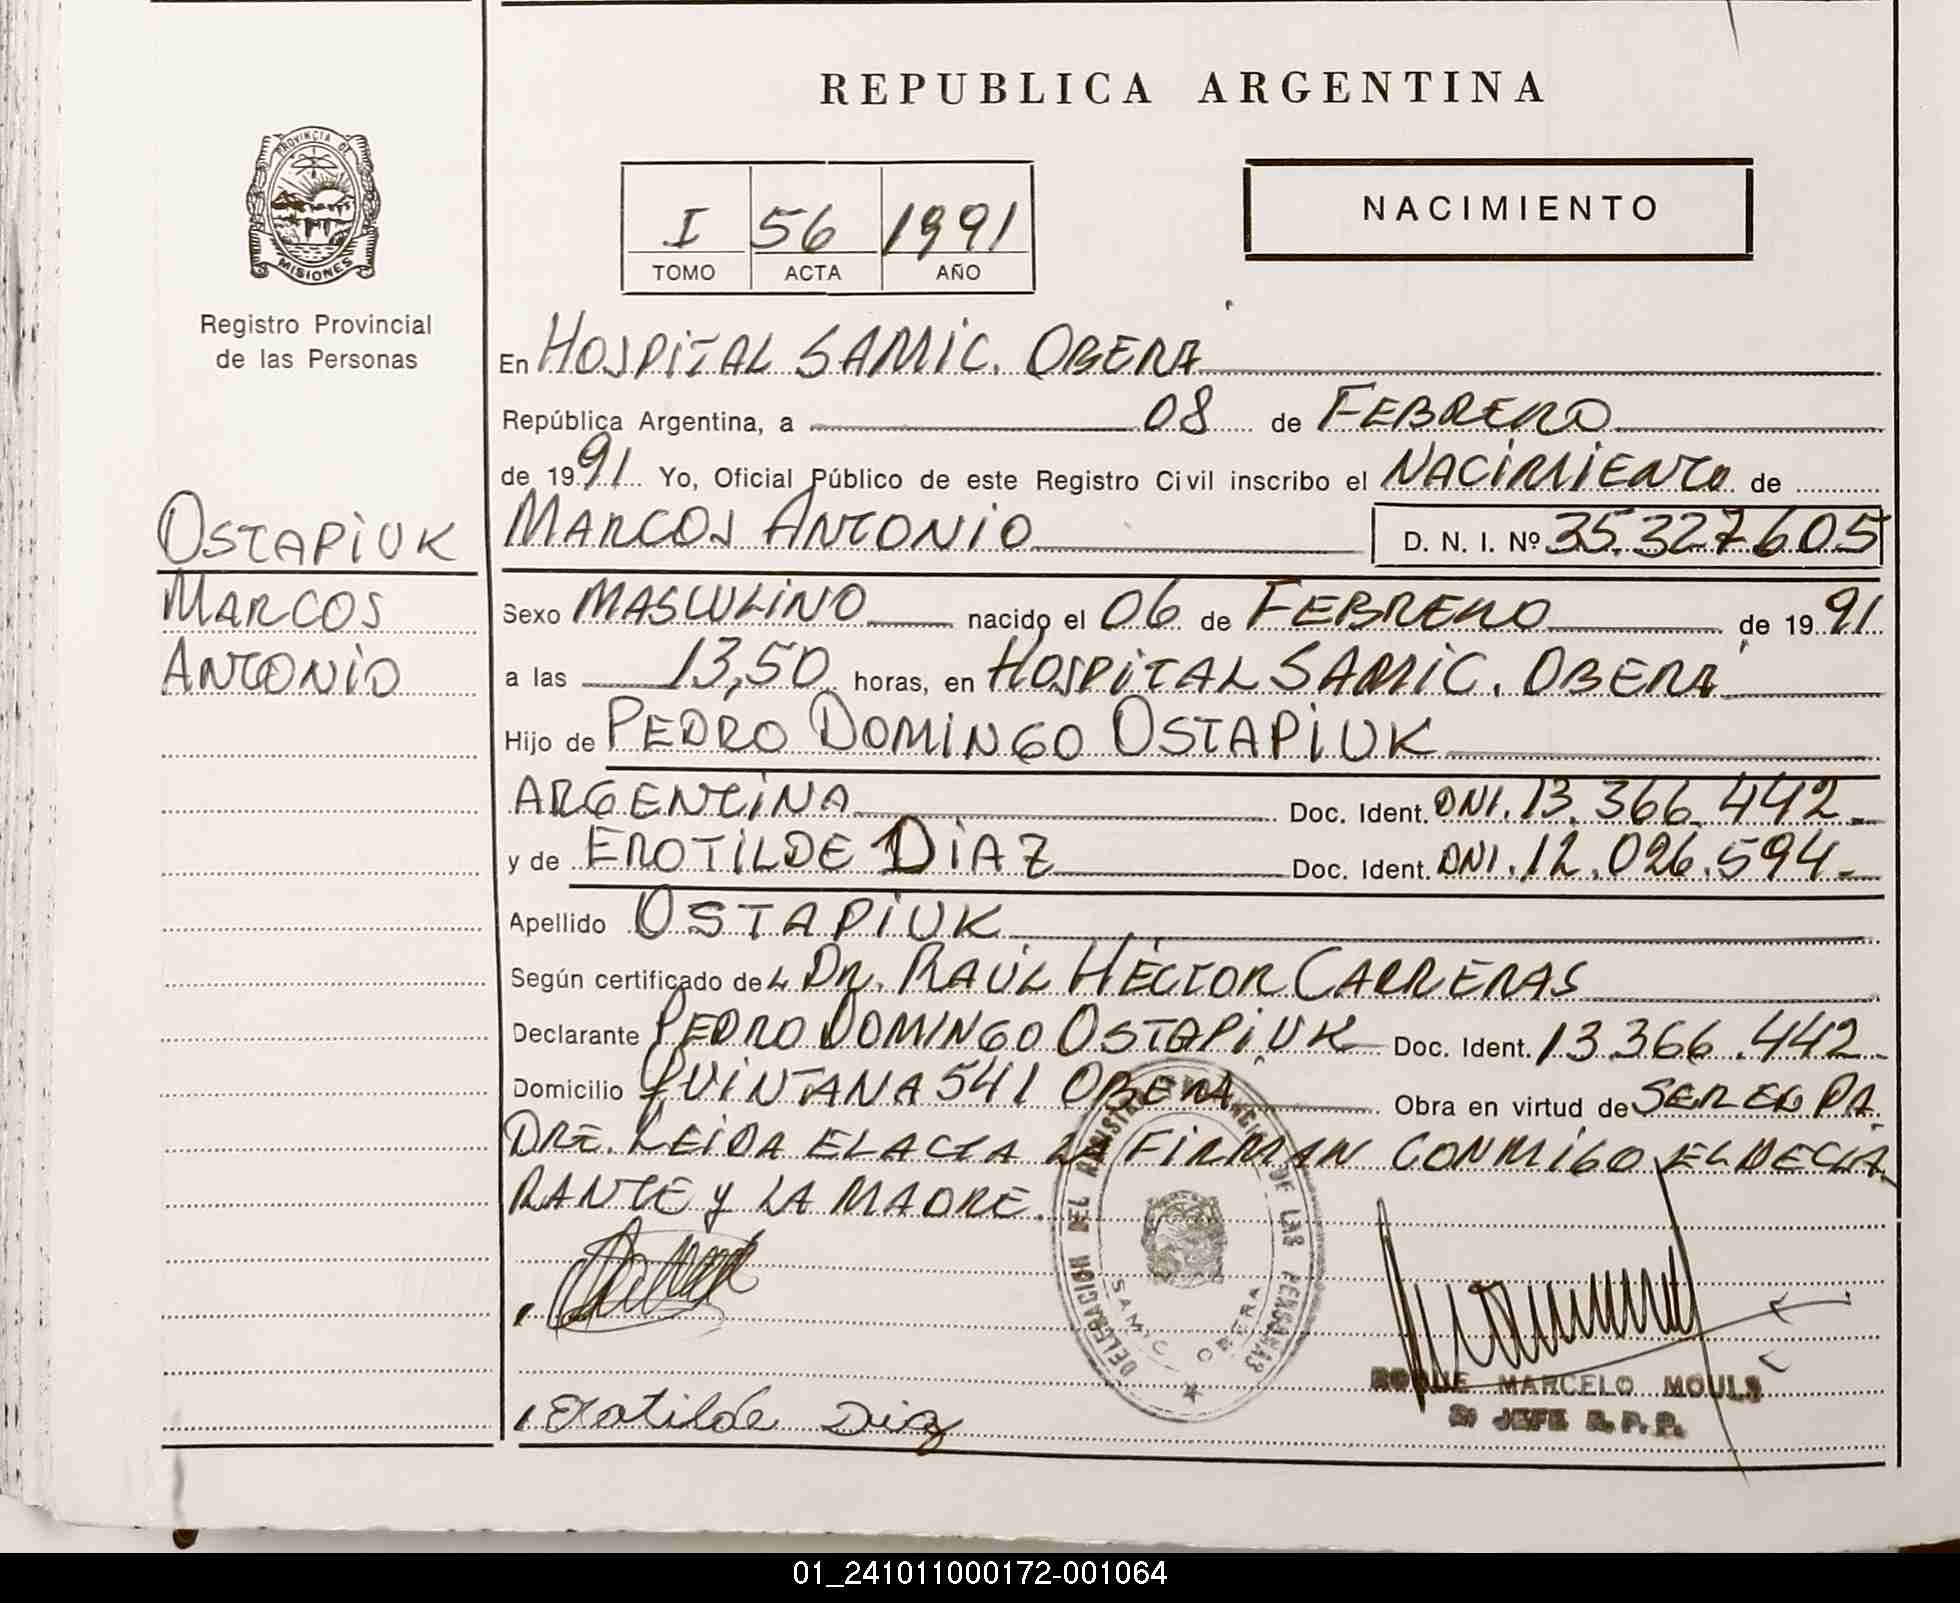 REPUBLICA ARGENTINA
PROVINCIA DE
MISIONES
Registro Provincial
de las Personas
I 56 1991
TOMO ACTA AÑO
NACIMIENTO
En HOSPITAL SAMIC. OBERA
República Argentina, a 08 de FEBRERO
de 1991 Yo, Oficial Público de este Registro Civil inscribo el NACIMIENTO de
OSTAPIUK
MARCOS
ANTONIO
MARCOS ANTONIO D. N. I. Nº 35.327.605
Sexo MASCULINO nacido el 06 de FEBRERO de 1991
a las 13,50 horas, en HOSPITAL SAMIC. OBERA
Hijo de PEDRO DOMINGO OSTAPIUK
ARGENTINA Doc. Ident. DNI. 13.366.442-
y de EROTILDE DIAZ Doc. Ident. DNI. 12.026.594-
Apellido OSTAPIUK
Según certificado del DR. RAÚL HÉCTOR CARRERAS
Declarante PEDRO DOMINGO OSTAPIUK Doc. Ident. 13.366.442-
Domicilio QUINTANA 541 OBERA Obra en virtud de SER EL PA
DRE. LEIDA EL ACTA LA FIRMAN CONMIGO EL DECLA
RANTE Y LA MADRE.
DELEGACION DEL DE LAS PERSONAS
SAMIC OBERA
Erotilde Diaz
ROQUE MARCELO MOULS
JEFE R.P.P.
01_241011000172-001064